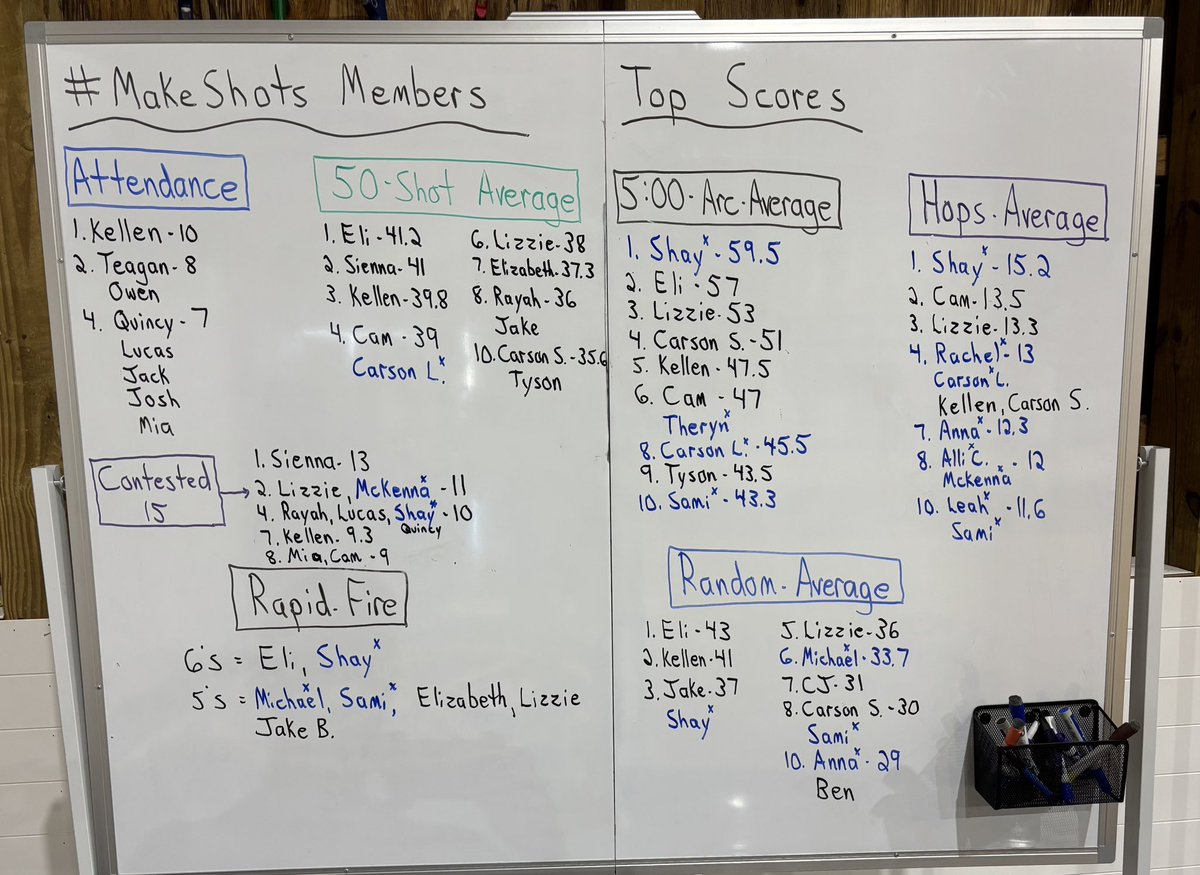 #MakeShots Members
Attendance
1. Kellen - 10
2. Teagan - 8
Owen
4. Quincy - 7
Lucas
Jack
Josh
Mia
50-Shot Average
1. Eli - 41.2
2. Sienna - 41
3. Kellen - 39.8
4. Cam - 39
Carson L.x
6. Lizzie - 38
7. Elizabeth - 37.3
8. Rayah - 36
Jake
10. Carson S. - 35.6
Tyson
Contested
15
1. Sienna - 13
2. Lizzie, McKennax - 11
4. Rayah, Lucas, Shayx - 10
Quincy
7. Kellen - 9.3
8. Mia, Cam - 9
Rapid-Fire
6's = Eli, Shayx
5's = Michaelx, Samix, Elizabeth, Lizzie
Jake B.
Top Scores
5:00-Arc-Average
1. Shayx - 59.5
2. Eli - 57
3. Lizzie - 53
4. Carson S. - 51
5. Kellen - 47.5
6. Cam - 47
Therynx
8. Carson L.x - 45.5
9. Tyson - 43.5
10. Samix - 43.3
Hops-Average
1. Shayx - 15.2
2. Cam - 13.5
3. Lizzie - 13.3
4. Rachelx - 13
Carsonx L.
Kellen, Carson S.
7. Annax - 12.3
8. Allix C. - 12
Mckennax
10. Leahx - 11.6
Samix
Random-Average
1. Eli - 43
2. Kellen - 41
3. Jake - 37
Shayx
5. Lizzie - 36
6. Michaelx - 33.7
7. CJ - 31
8. Carson S. - 30
Samix
10. Annax - 29
Ben